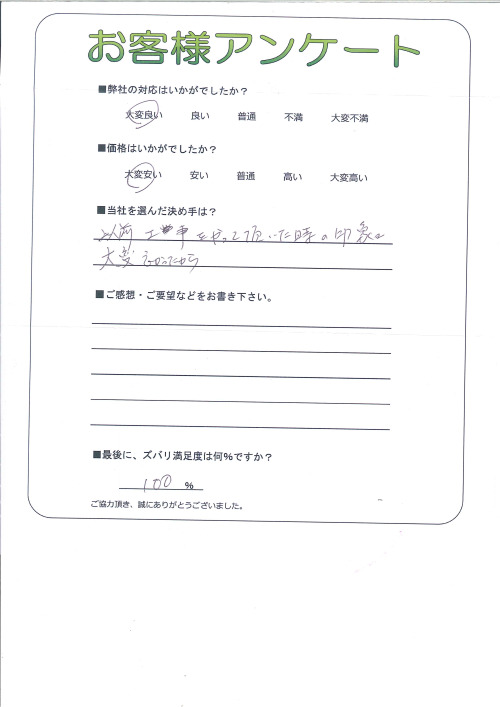 お客様アンケート
■弊社の対応はいかがでしたか？
大変良い 良い 普通 不満 大変不満
■価格はいかがでしたか？
大変安い 安い 普通 高い 大変高い
■当社を選んだ決め手は？
以前 工事をやって頂いた時の印象が
大変よかったから
■ご感想・ご要望などをお書き下さい。
■最後に、ズバリ満足度は何％ですか？
100 ％
ご協力頂き、誠にありがとうございました。